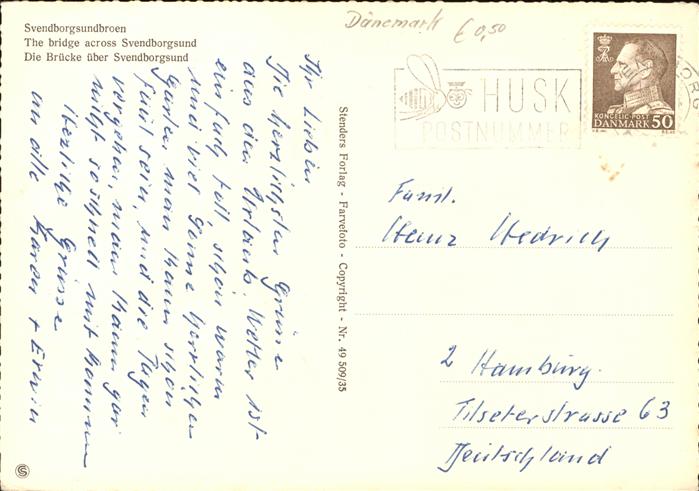 Svendborgsundbroen
The bridge across Svendborgsund
Die Brücke über Svendborgsund
Dänemark € 0,50
HUSK
POSTNUMMER
KONGELIG · POST
DANMARK 50
Ihr Lieben
Die herzlichsten Grüsse
aus dem Urlaub. Wetter ist
einfach toll, schon warm
und viel Sonne herrlicher
Garten, man kann schön
faul sein, und die Tage
vergehen, man kann gar
nicht so schnell mitkommen
Herzliche Grüsse
an alle Karen + Erwin
Stenders Forlag - Farvefoto - Copyright - Nr. 49 509/35
Famil.
Heinz Hedrich
2 Hamburg.
Tilseterstrasse 63
Deutschland